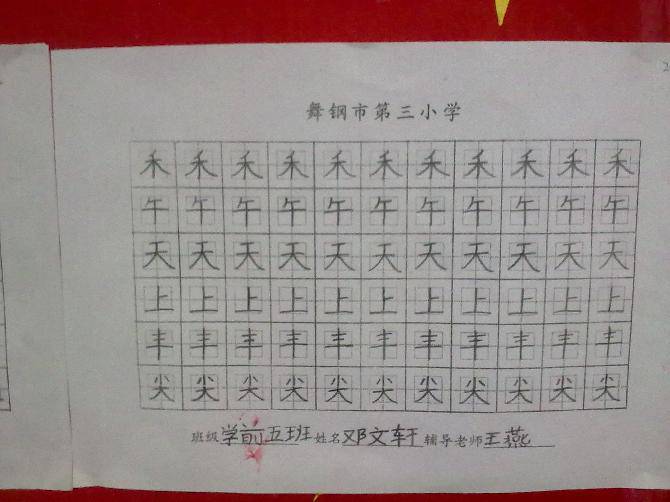 舞钢市第三小学
禾禾禾禾禾禾禾禾禾禾禾
午午午午午午午午午午午
天天天天天天天天天天天
上上上上上上上上上上上
丰丰丰丰丰丰丰丰丰丰丰
尖尖尖尖尖尖尖尖尖尖尖
班级学前五班姓名邓文轩辅导老师王燕